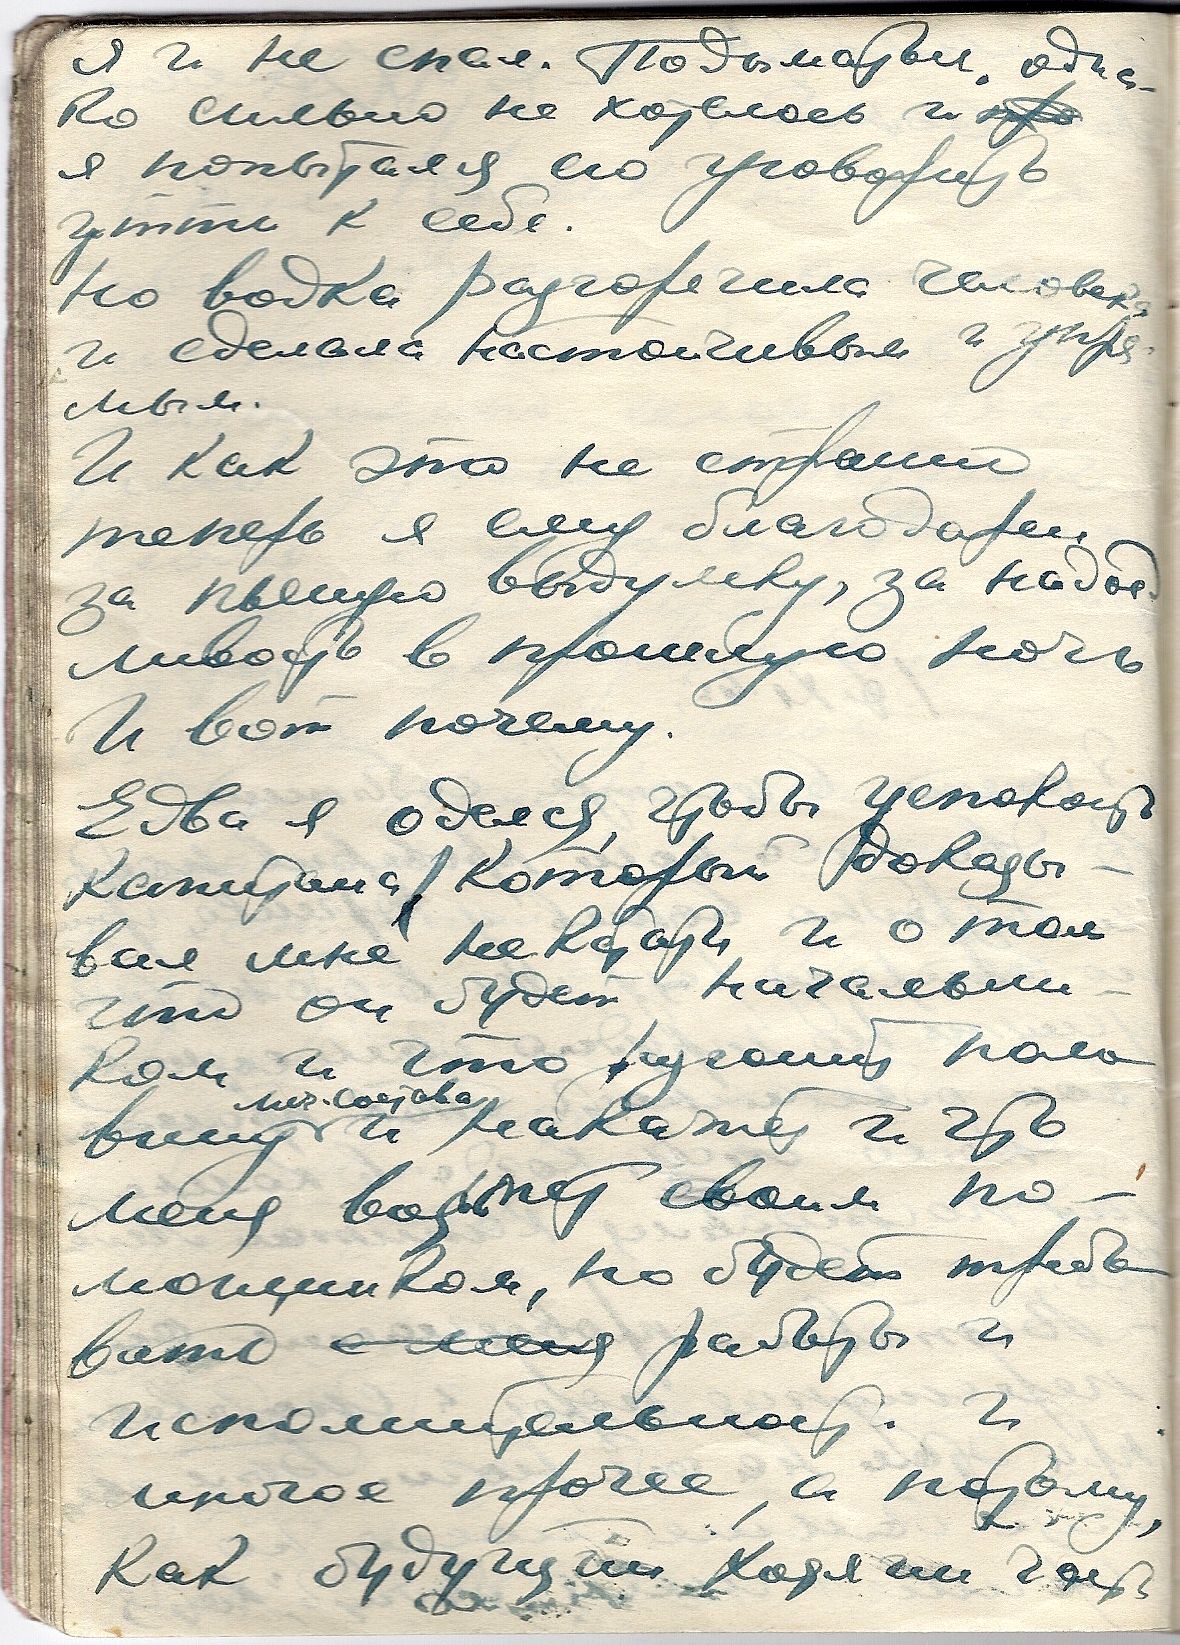 я и не спал. Подыматься, одна-
ко сильно не хотелось и
я попытался его уговорить
уйти к себе.
Но водка разгорячила человека
и сделала настойчивым и упря-
мым.
И как это не странно
теперь я ему благодарен
за пьяную выдумку, за надоед-
ливость в прошлую ночь
И вот почему.
Едва я оделся, чтобы успокоить
капитана, который доказы-
вал мне некстати и о том
что он будет начальни-
ком и что разгонит поло
вину лич. состава и накажет и что
меня возьмет своим по-
мощником, но будет требо
вать с меня работы и
исполнительност. и
многое прочее, а потому,
как будущий хозяин части